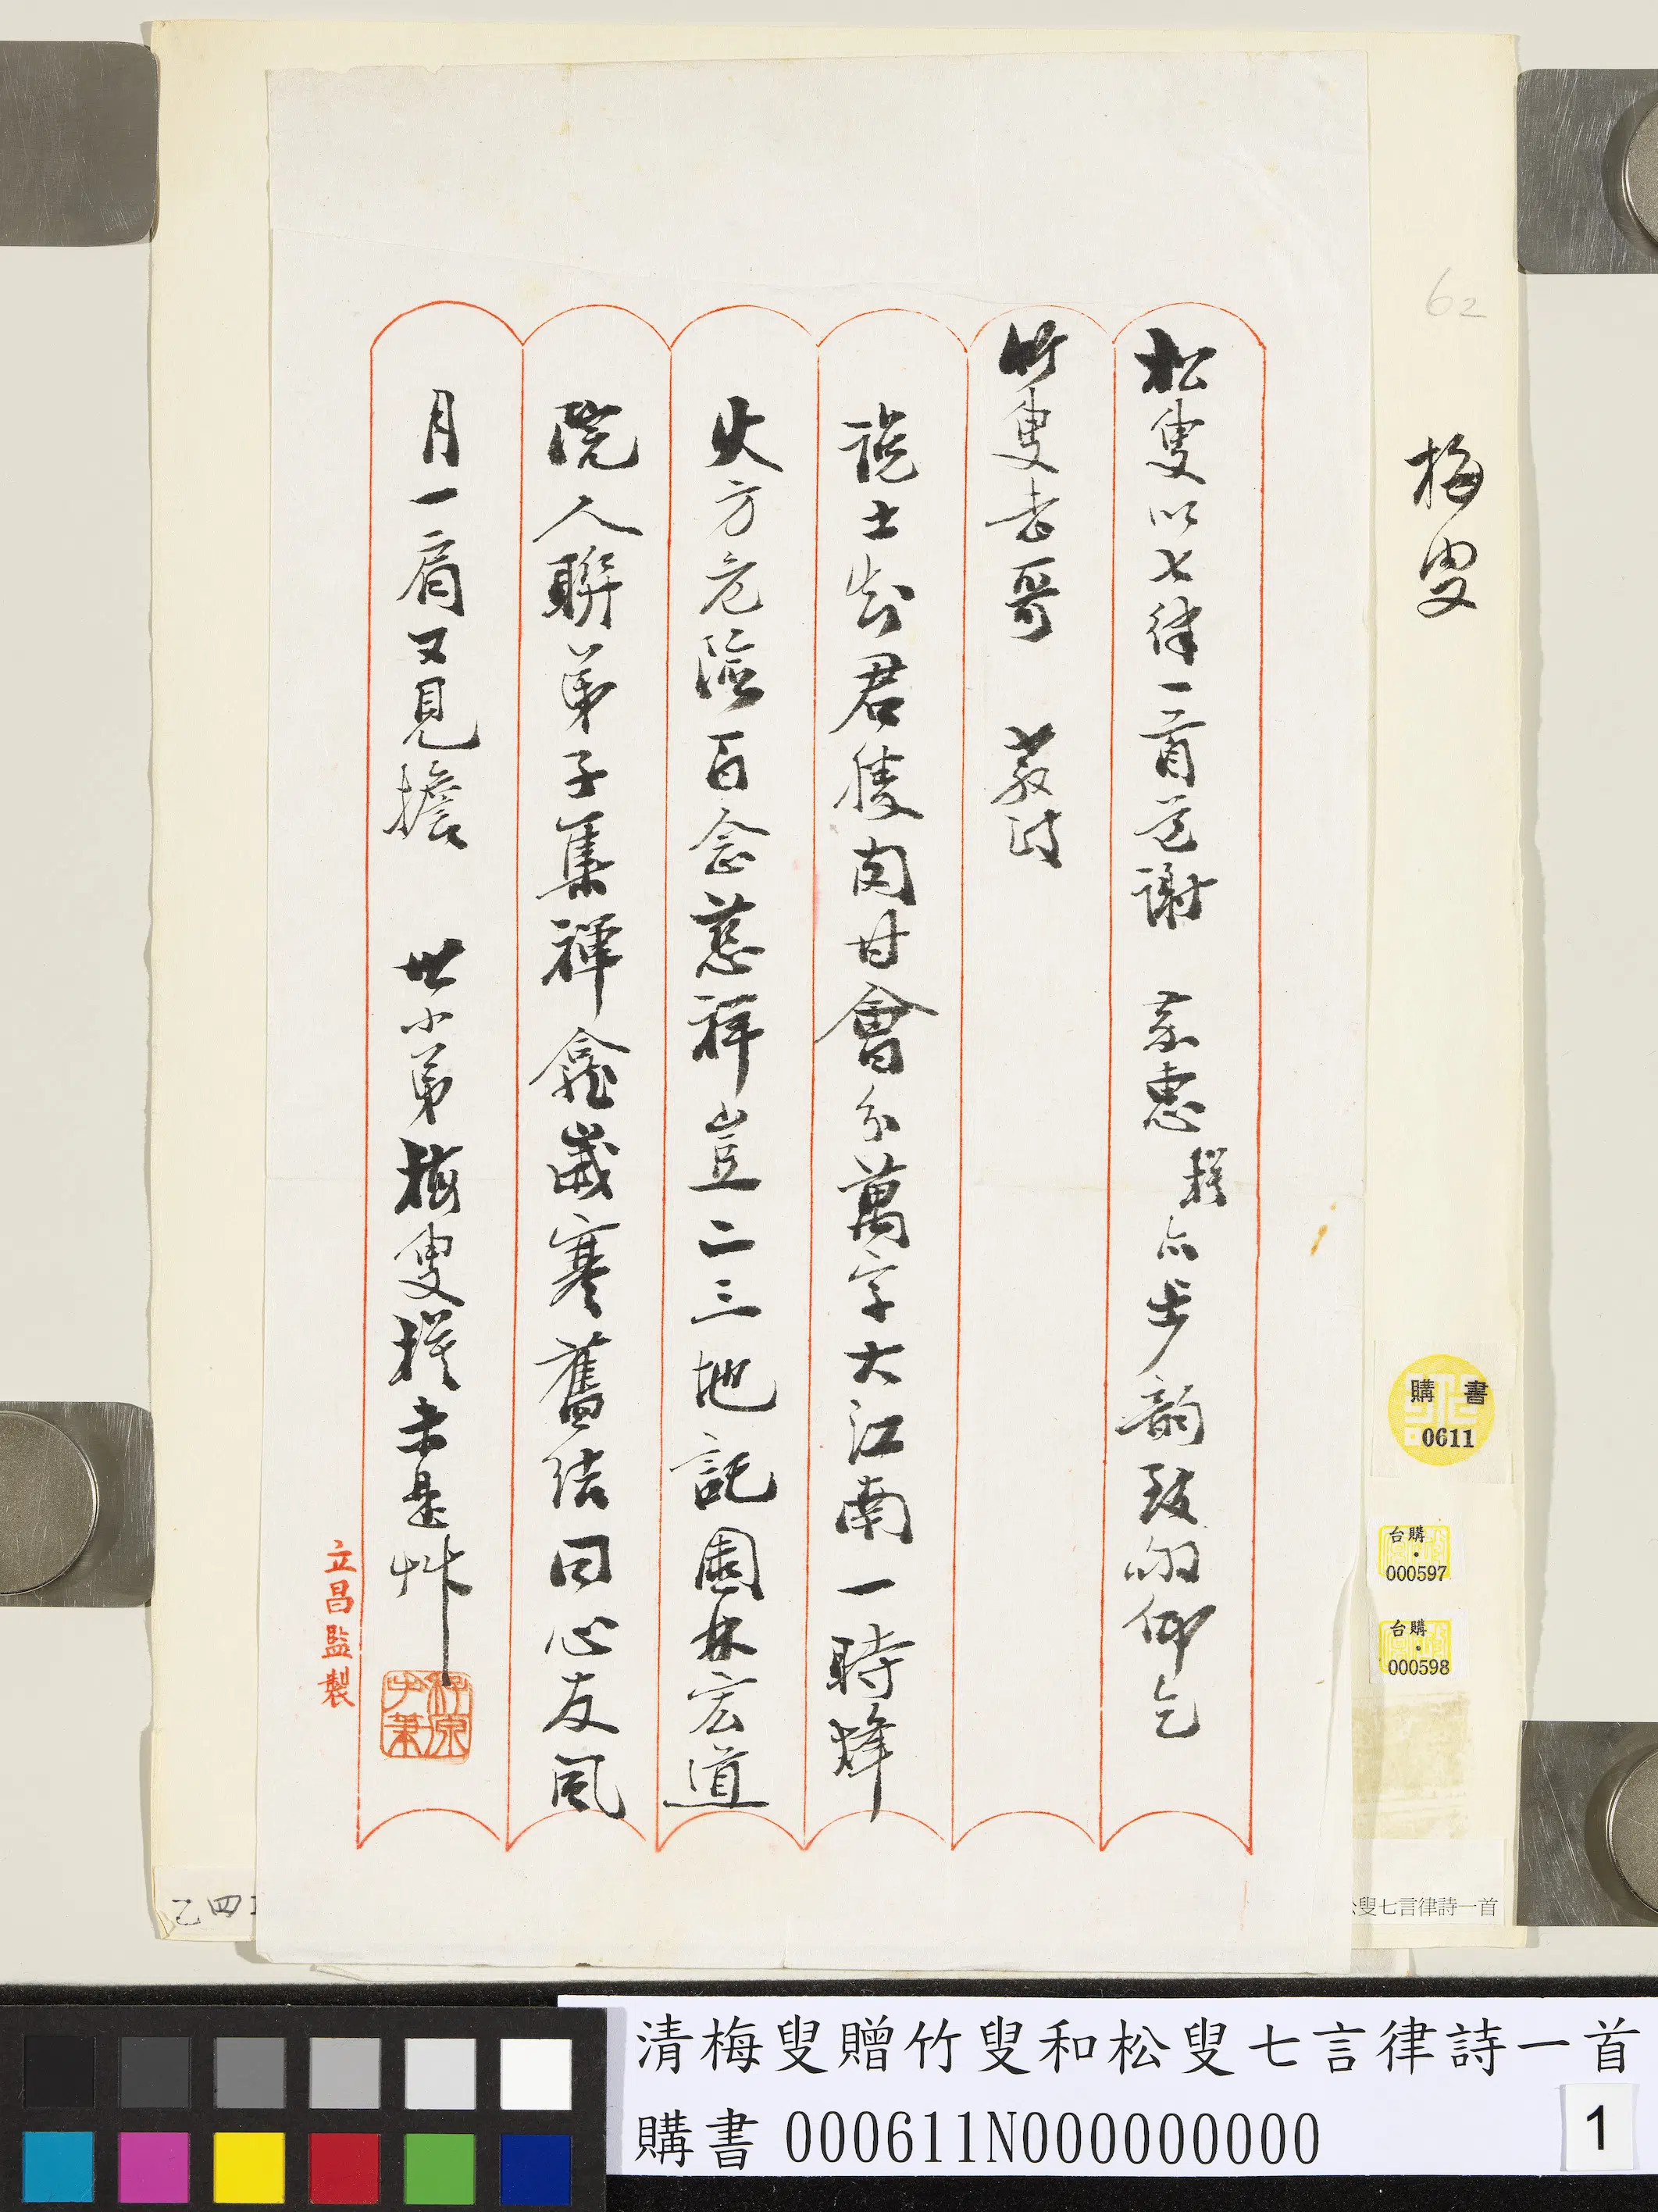 梅叟
62
松叟以七律一首 謝 惠樸亦步韵致 仰乞
竹叟老哥 教政
說士 君勝肉甘會分萬字大江南一時烽
火方危險百念慈祥豈二三地託園林宏道
院人聯弟子集禪龕歲寒舊結同心友風
月一肩又見擔 世小弟梅叟樸未是艸
立昌監製
購書
0611
台購・
000597
台購・
000598
叟七言律詩一首
乙四
清梅叟贈竹叟和松叟七言律詩一首
購書 000611N000000000
1